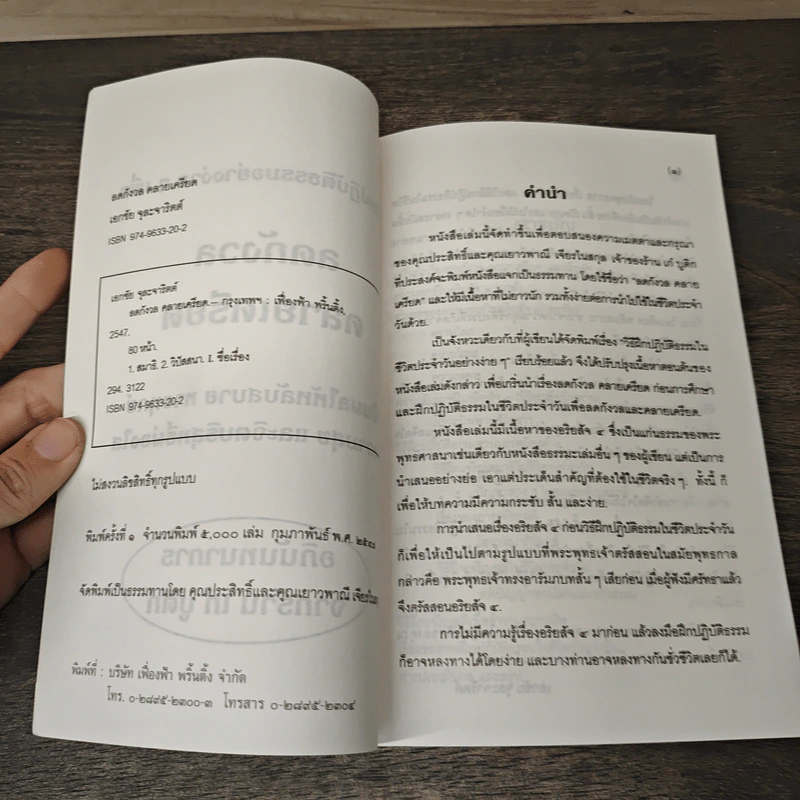 ลดกังวล คลายเครียด
เอกชัย จุละจาริตต์
ISBN 974-9633-20-2
เอกชัย จุละจาริตต์
ลดกังวล คลายเครียด.-- กรุงเทพฯ : เฟื่องฟ้า พริ้นติ้ง,
2547.
80 หน้า.
1. สมาธิ. 2. วิปัสสนา. I. ชื่อเรื่อง
294. 3122
ISBN 974-9633-20-2
ไม่สงวนลิขสิทธิ์ทุกรูปแบบ
พิมพ์ครั้งที่ ๑ จำนวนพิมพ์ ๕,๐๐๐ เล่ม กุมภาพันธ์ พ.ศ.
จัดพิมพ์เป็นธรรมทานโดย คุณประสิทธิ์และคุณเยาวพาณี
พิมพ์ที่ : บริษัท เฟื่องฟ้า พริ้นติ้ง จำกัด
โทร. ๐-๒๘๙๕-๒๓๐๐-๓ โทรสาร ๐-๒๘๙๕-๒๓๐๔
(๑)
คำนำ
หนังสือเล่มนี้จัดทำขึ้นเพื่อตอบสนองความเมตตาและกรุณา
ของคุณประสิทธิ์และคุณเยาวพาณี เจียรในสกุล เจ้าของร้าน เก๋ บูติก
ที่ประสงค์จะพิมพ์หนังสือแจกเป็นธรรมทาน โดยใช้ชื่อว่า "ลดกังวล คลาย
เครียด" และให้มีเนื้อหาที่ไม่ยาวนัก รวมทั้งง่ายต่อการนำไปใช้ในชีวิตประจำ
วันด้วย.
เป็นจังหวะเดียวกับที่ผู้เขียนได้จัดพิมพ์เรื่อง "วิธีฝึกปฏิบัติธรรมใน
ชีวิตประจำวันอย่างง่าย ๆ" เรียบร้อยแล้ว จึงได้ปรับปรุงเนื้อหาตอนต้นของ
หนังสือเล่มดังกล่าว เพื่อเกริ่นนำเรื่องลดกังวล คลายเครียด ก่อนการศึกษา
และฝึกปฏิบัติธรรมในชีวิตประจำวันเพื่อลดกังวลและคลายเครียด.
หนังสือเล่มนี้มีเนื้อหาของอริยสัจ ๔ ซึ่งเป็นแก่นธรรมของพระ
พุทธศาสนาเช่นเดียวกับหนังสือธรรมะเล่มอื่น ๆ ของผู้เขียน แต่เป็นการ
นำเสนออย่างย่อ เอาแต่ประเด็นสำคัญที่ต้องใช้ในชีวิตจริง ๆ. ทั้งนี้ ก็
เพื่อให้บทความมีความกระชับ สั้น และง่าย.
การนำเสนอเรื่องอริยสัจ ๔ ก่อนวิธีฝึกปฏิบัติธรรมในชีวิตประจำวัน
ก็เพื่อให้เป็นไปตามรูปแบบที่พระพุทธเจ้าตรัสสอนในสมัยพุทธกาล
กล่าวคือ พระพุทธเจ้าทรงอารัมภบทสั้น ๆ เสียก่อน เมื่อผู้ฟังมีศรัทธาแล้ว
จึงตรัสสอนอริยสัจ ๔.
การไม่มีความรู้เรื่องอริยสัจ ๔ มาก่อน แล้วลงมือฝึกปฏิบัติธรรม
ก็อาจหลงทางได้โดยง่าย และบางท่านอาจหลงทางกันชั่วชีวิตเลยก็ได้.